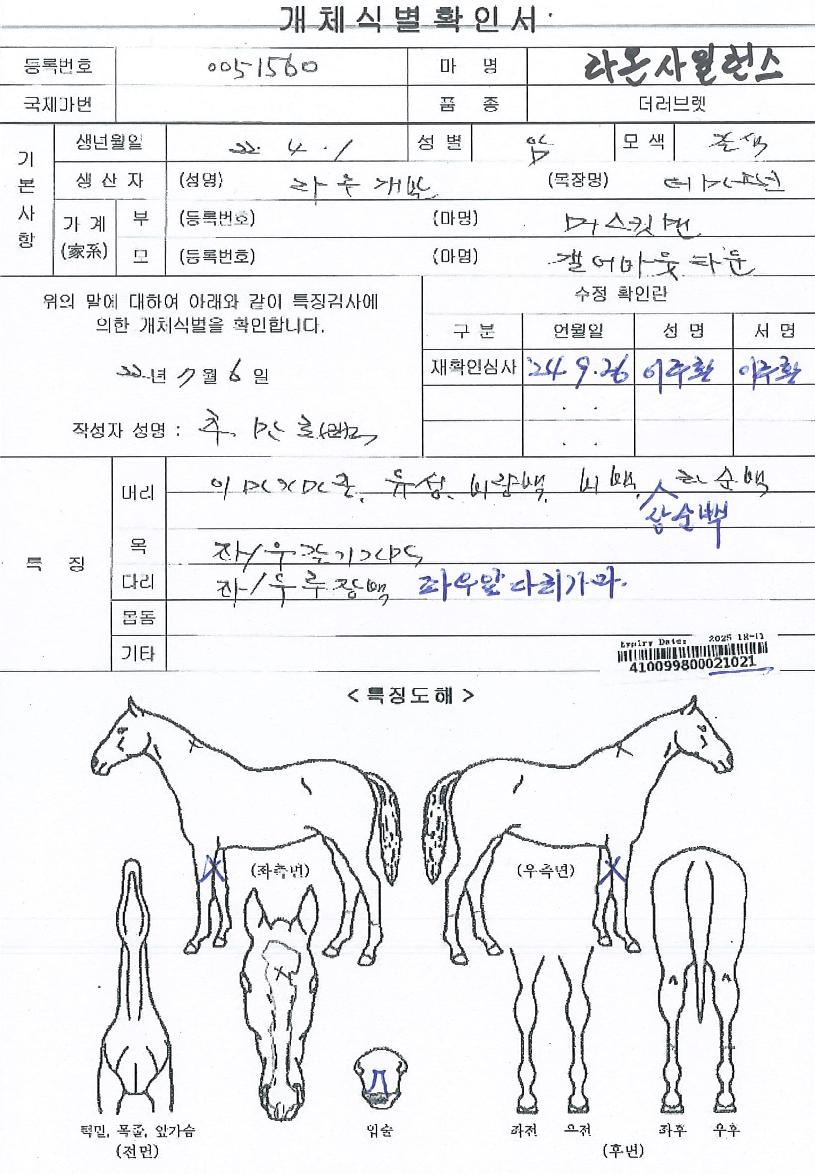 개체식별확인서
등록번호 0051560 마 명 라온사일런스
국제마번 품 종 더러브렛
기본사항
생년월일 22. 4. 1 성별 암 모색 갈색
생산자 (성명) (목장명)
가계(家系) 부 (등록번호) (마명) 머스킷맨
모 (등록번호) (마명)
위의 말에 대하여 아래와 같이 특징검사에
의한 개체식별을 확인합니다.
22년 7월 6일
작성자 성명 :
수정 확인란
구분 연월일 성명 서명
재확인심사 '24. 9. 26 이주환 이주환
. .
. .
특징
머리 유성, 비량백, 비백, 하순백
상순백
목
다리 좌/우 후장백 좌우앞다리가마.
몸통
기타
Expiry Date:
410099800021021
<특징도해>
(좌측면) (우측면)
턱밑, 목줄, 앞가슴
(전면)
입술
좌전 우전 좌후 우후
(후면)